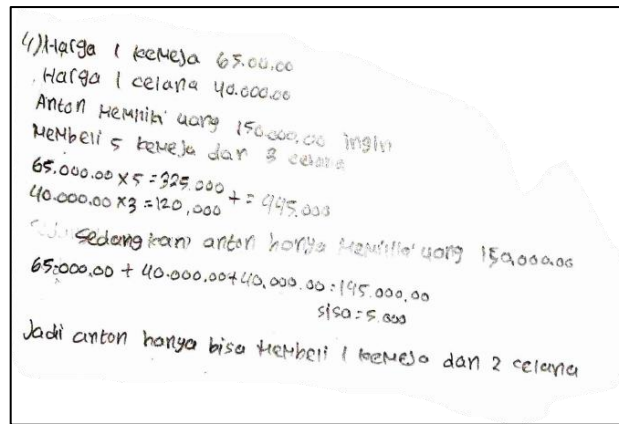 4) Harga 1 kemeja 65.00,00
Harga 1 celana 40.000.00
Anton Memiliki uang 150.000,00 ingin
Membeli 5 kemeja dan 3 celana
65.000.00 x 5 = 325.000
+ = 445.000
40.000.00 x 3 = 120,000
Sedangkan anton hanya Memiliki uang 150.000.00
65.000,00 + 40.000,00 + 40,000.00 = 145.000,00
sisa = 5.000
Jadi anton hanya bisa Membeli 1 kemeja dan 2 celana